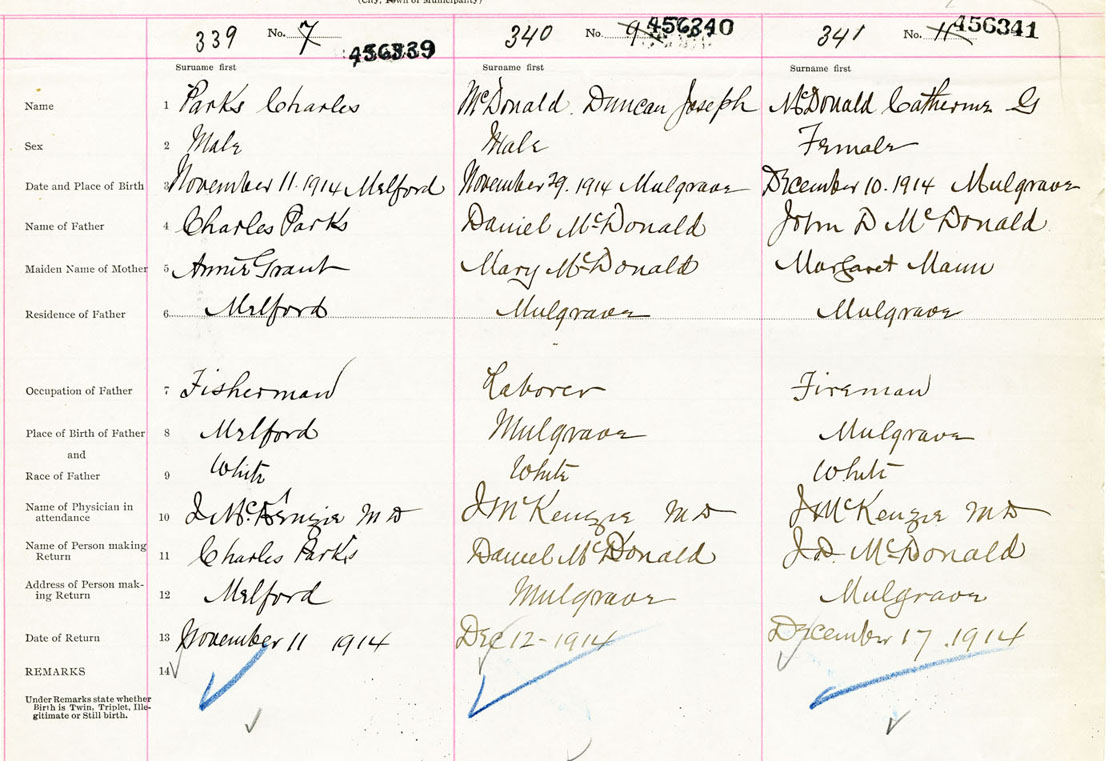 (City, Town or Municipality)
339 No. 7 456339 340 No. 9 456340 341 No. 11 456341
Surname first Surname first Surname first
Name 1 Parks Charles McDonald. Duncan Joseph McDonald Catherine G
Sex 2 Male Male Female
Date and Place of Birth 3 November 11. 1914 Melford November 29. 1914 Mulgrave December 10. 1914 Mulgrave
Name of Father 4 Charles Parks Daniel McDonald John D McDonald
Maiden Name of Mother 5 Annie Grant Mary McDonald Margaret Mann
Residence of Father 6 Melford Mulgrave Mulgrave
Occupation of Father 7 Fisherman Laborer Fireman
Place of Birth of Father 8 Melford Mulgrave Mulgrave
and
Race of Father 9 White White White
Name of Physician in
attendance 10 J McKenzie MD J McKenzie MD J McKenzie MD
Name of Person making
Return 11 Charles Parks Daniel McDonald J.D. McDonald
Address of Person mak-
ing Return 12 Melford Mulgrave Mulgrave
Date of Return 13 November 11 1914 Dec 12-1914 December 17. 1914
REMARKS 14
Under Remarks state whether
Birth is Twin, Triplet, Ille-
gitimate or Still birth.